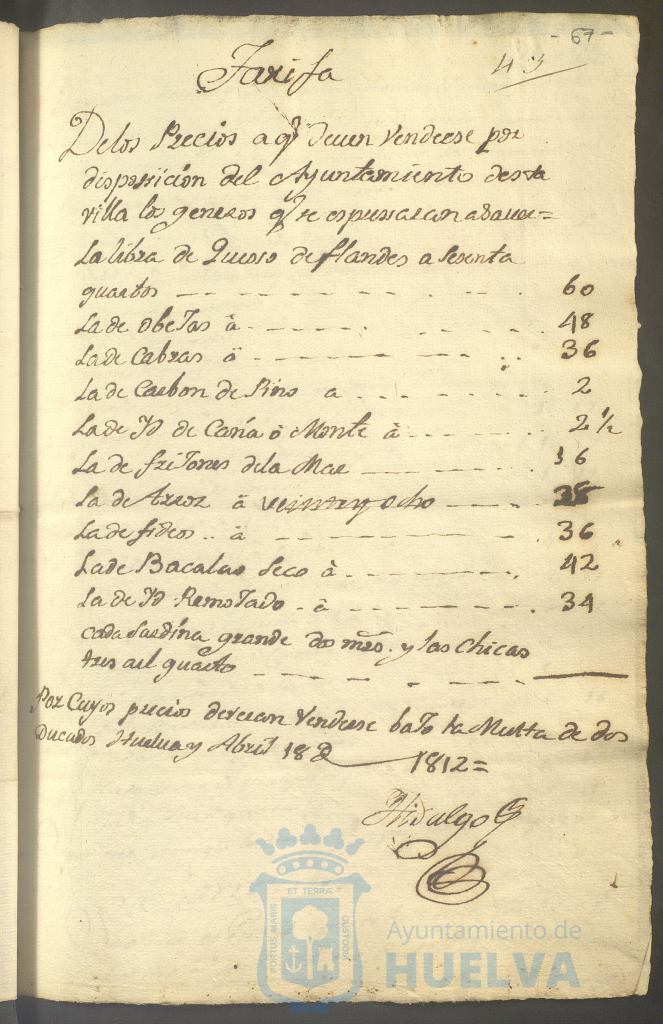 - 67 -
43
Tarifa
De los Precios a q.e deven venderse por
disposision del Ayuntamiento desta
villa los generos q.e se espressaran avaxo=
La libra de Queso de flandes a sesenta
quartos - - - - - 60
La de obejas à - - - - - 48
La de Cabras à - - - - - 36
La de Carbon de Pino a - - - - - 2
La de Yd de Caña ò Monte à - - - - - 2 1/2
La de fritones de la Mar - - - - - 16
La de Arroz à veinte y ocho - - - - 28
La de fideos .. à - - - - - 36
La de Bacalao Seco à - - - - - 42
La de Yd Remojado - à - - - - - 34
cada Sardina grande dos mrs. y las chicas
tres al quarto - - - - -
Por Cuyos precios deveran venderse bajo la Multa de dos
Ducados Huelva y Abril 18 D 1812=
Hidalgo
PORTUS MARIS
ET TERRÆ
CUSTODIA
Ayuntamiento de
HUELVA